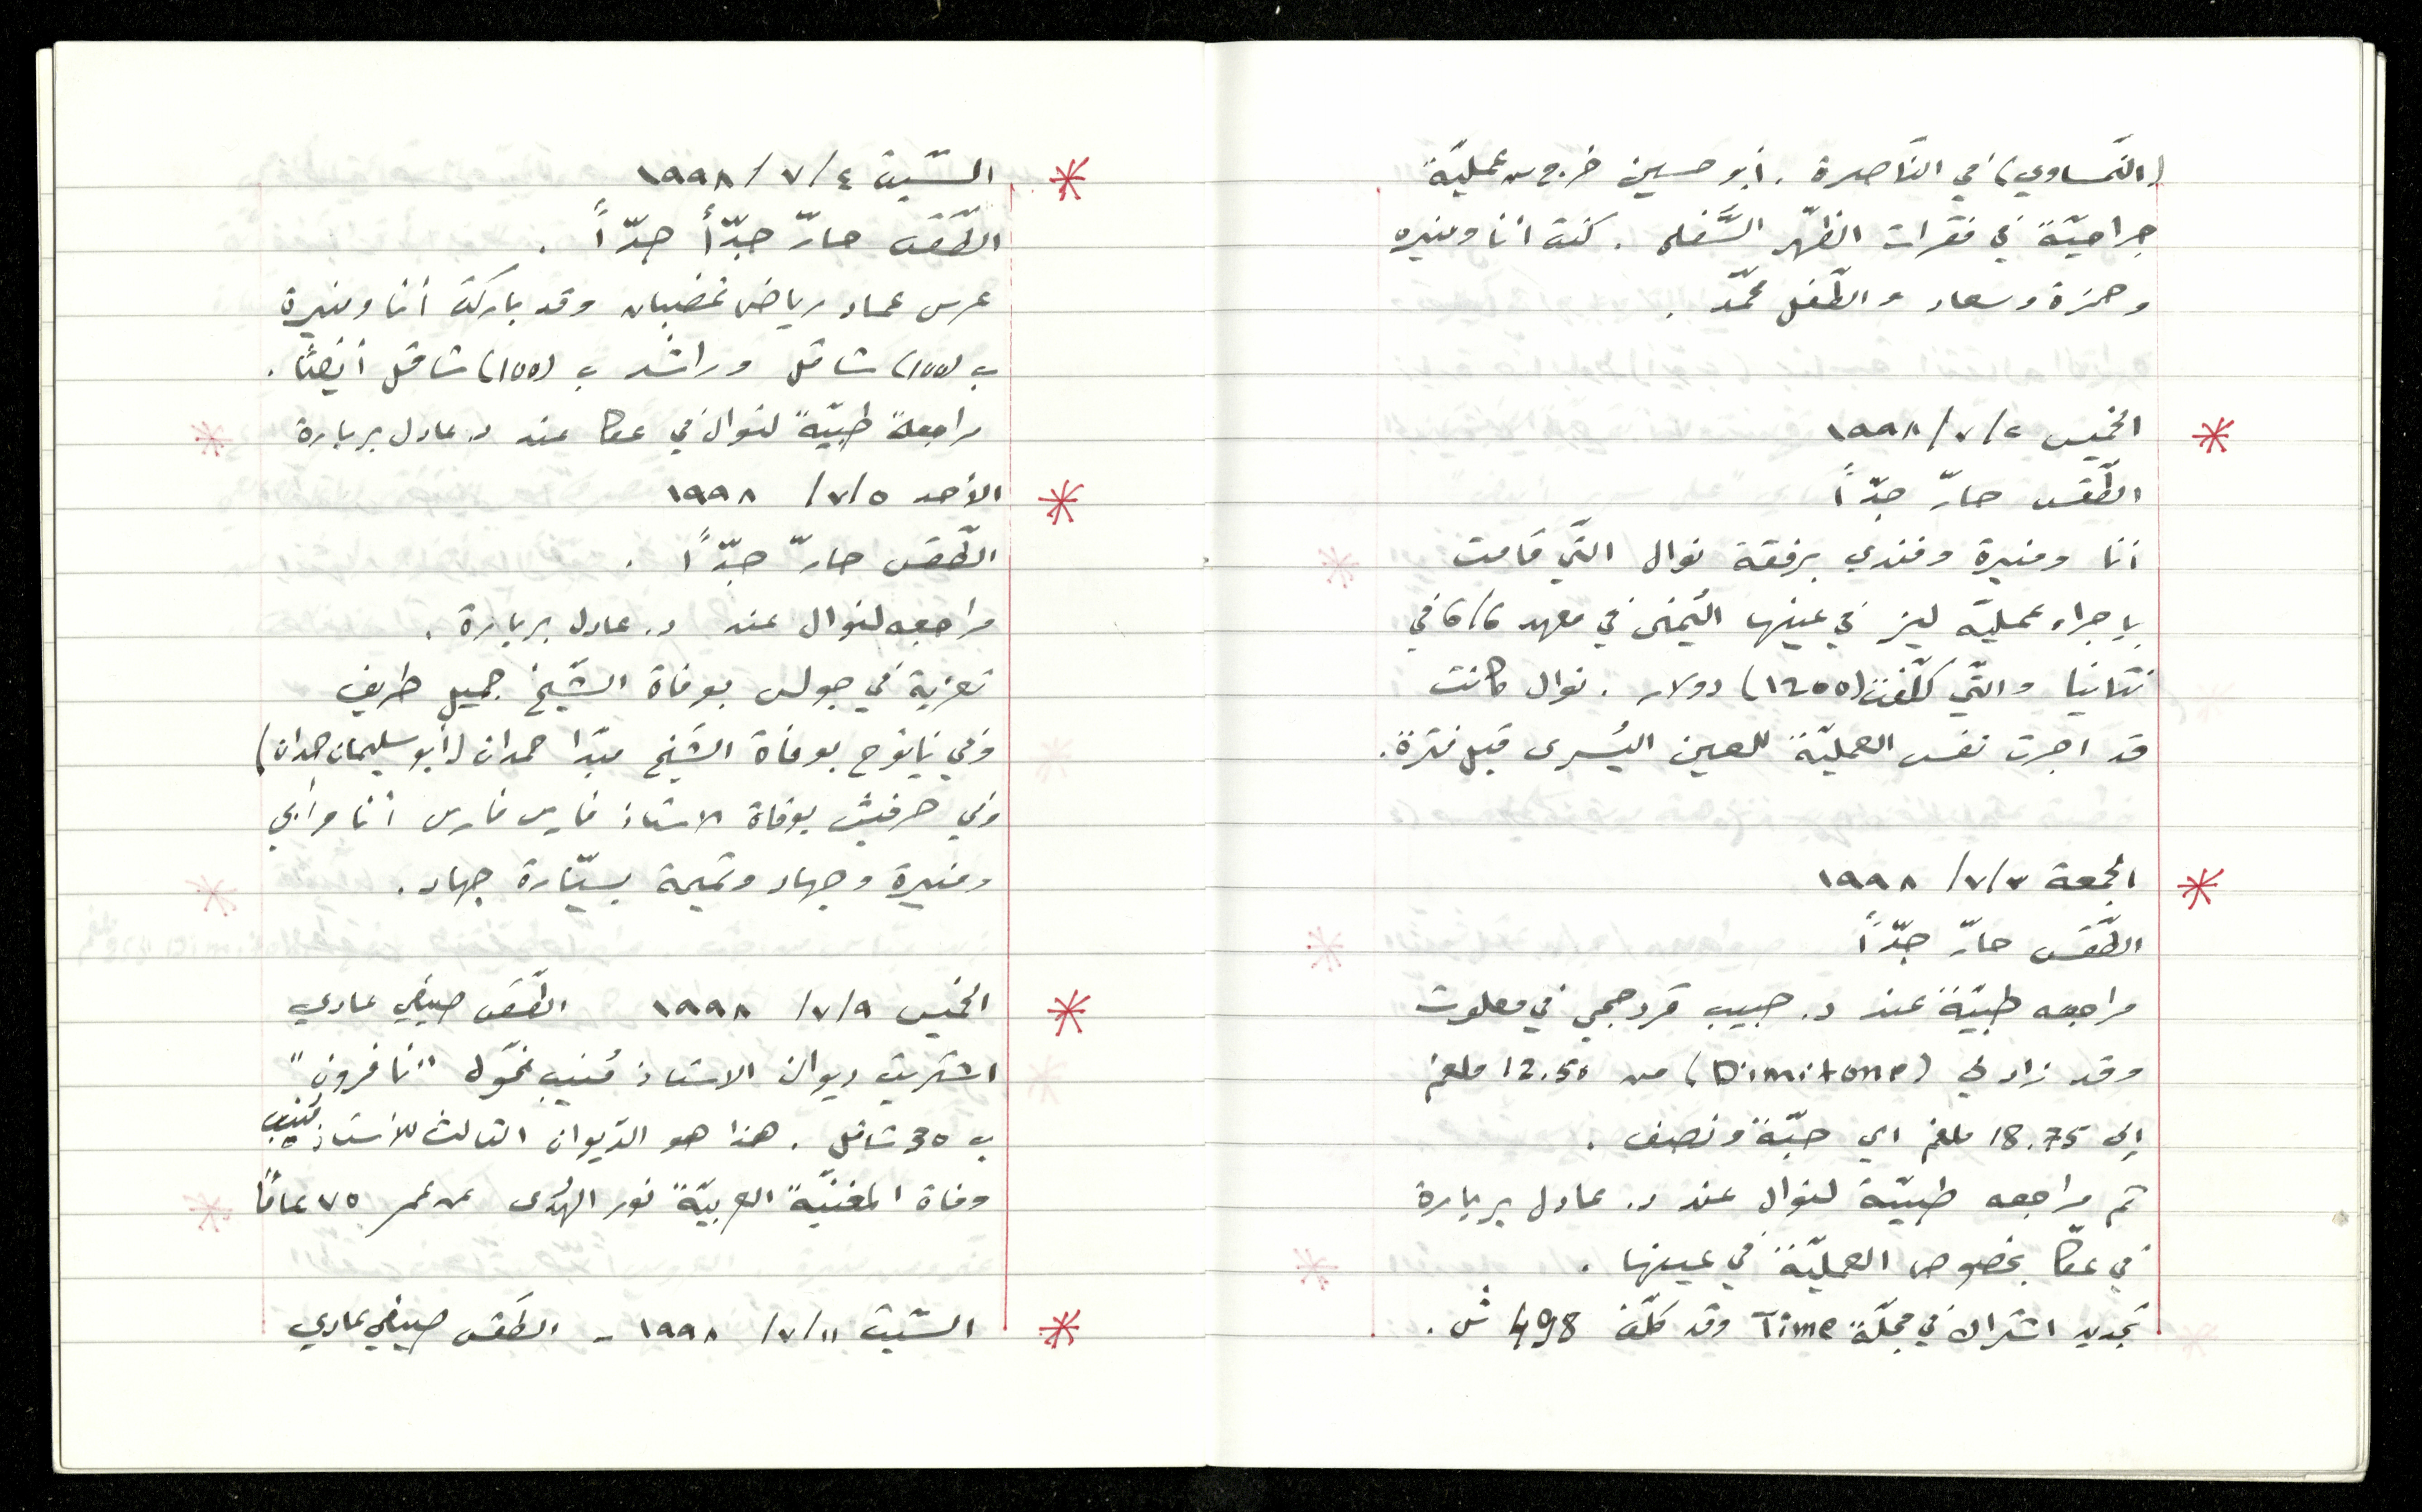 (النّمساوي) في النّاصرة. أبو حسين خرج من عمليّة
جراحيّة في فقرات الظّهر السُّفلى. كنت أنا ومنيره
وحمزة وسعاد والطّفل محمّد.
* الخميس ٢/٧/١٩٩٨
الطّقس حارّ جدّاً
أنا ومنيرة وفندي برفقة نوال التّي قامت
بإجراء عمليّة ليزر في عينها اليُمنى في معهد 6/6 في
نتانيا والتّي كلّفت (1200) دولار. نوال كانت
قد اجرت نفس العمليّة للعين اليُسرى قبل فترة.
* الجمعة ٣/٧/١٩٩٨
الطّقس حارّ جدّاً
مراجعه طبيّة عند د. حبيب قردحجي في معلوت
وقد زاد لي (Dimitone) من 12.50 ملغم
إلى 18.75 ملغم اي حبّة ونصف.
تم مراجعه طبيّة لنوال عند د. عادل بربارة
في عكّا بخصوص العمليّة في عينها.
تجديد اشتراك في مجلّة Time وقد كلّف 498 ش.
* السّبت ٤/٧/١٩٩٨
الطّقس حارّ جدّاً جدّاً.
عرس عماد رياض غضبان وقد باركت أنا ومنيرة
ب (100) شاقل وراشد ب (100) شاقل أيضًا.
مراجعة طبيّة لنوال في عكا عند د. عادل بربارة
* الأحد ٥/٧/١٩٩٨
الطّقس حارّ جدّاً.
مراجعه لنوال عند د. عادل بربارة.
تعزية في جولس بوفاة الشّيخ جميل طريف
وفي يانوح بوفاة الشّيخ مبدّا حمدان (أبو سليمان حمدان)
وفي حرفيش بوفاة الاستاذ فارس فارس أنا وأبي
ومنيرة وجهاد وتميمة بسيّارة جهاد.
* الخميس ٩/٧/١٩٩٨ الطّقس صيفي عادي
اشتريت ديوان الاستاذ مُنيب مخّول "نافرون"
ب 30 شاقل. هذا هو الدّيوان الثالث للأستاذ مُنيب
وفاة المغنيّة العربيّة نور الهُدى عن عمر ٧٥ عامًا
* السّبت ١١/٧/١٩٩٨ - الطّقس صيفي عادي